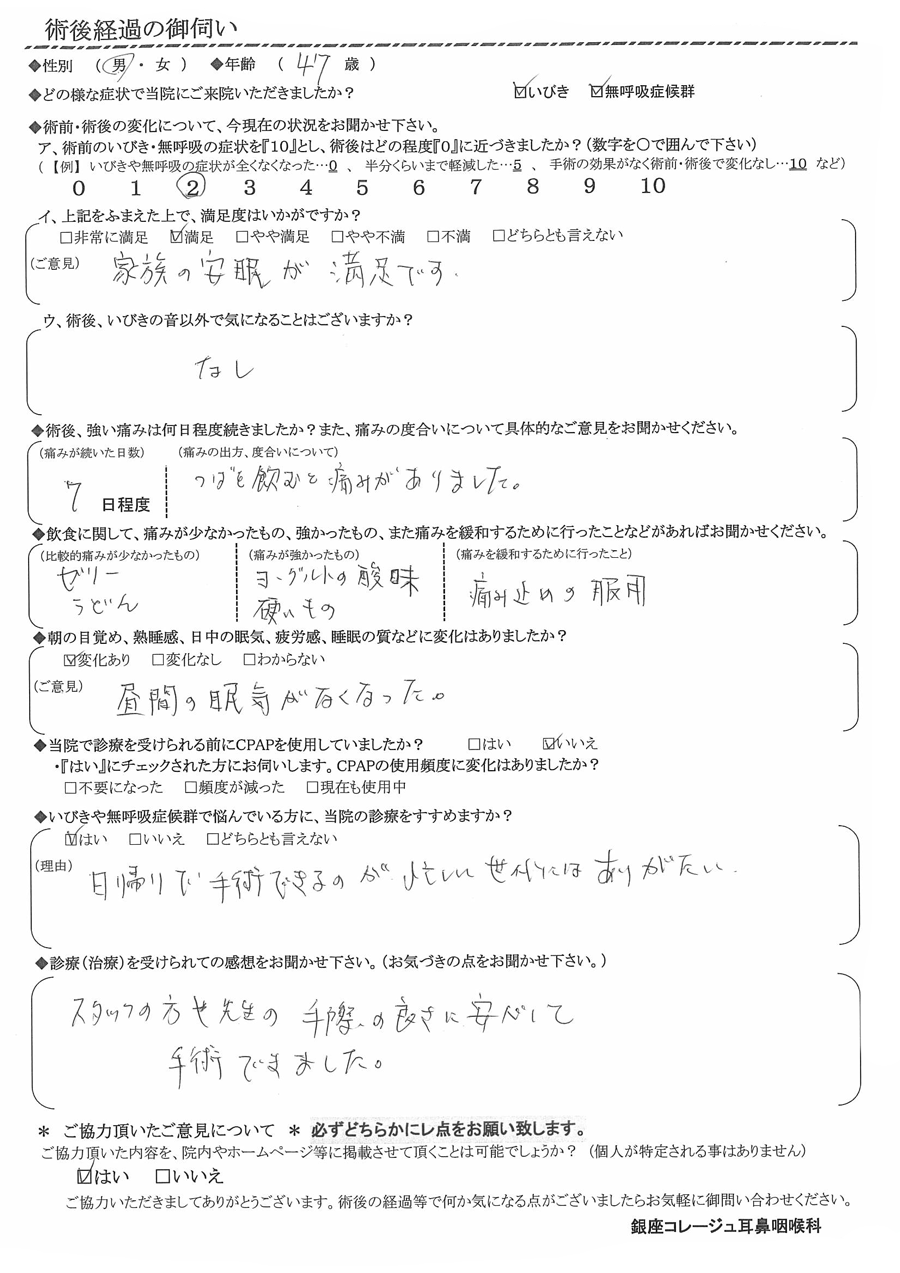 術後経過の御伺い
◆性別 （ 男 ・ 女 ） ◆年齢 （ 47 歳 ）
◆どの様な症状で当院にご来院いただきましたか？ ☑いびき ☑無呼吸症候群
◆術前・術後の変化について、今現在の状況をお聞かせ下さい。
ア、術前のいびき・無呼吸の症状を『10』とし、術後はどの程度『0』に近づきましたか？（数字を○で囲んで下さい）
（【例】 いびきや無呼吸の症状が全くなくなった…0 、 半分くらいまで軽減した…5 、 手術の効果がなく術前・術後で変化なし…10 など）
0 1 2 3 4 5 6 7 8 9 10
イ、上記をふまえた上で、満足度はいかがですか？
□非常に満足 ☑満足 □やや満足 □やや不満 □不満 □どちらとも言えない
（ご意見） 家族の安眠が満足です.
ウ、術後、いびきの音以外で気になることはございますか？
なし
◆術後、強い痛みは何日程度続きましたか？また、痛みの度合いについて具体的なご意見をお聞かせください。
（痛みが続いた日数） （痛みの出方、度合いについて）
7 日程度 つばを飲むと痛みがありました。
◆飲食に関して、痛みが少なかったもの、強かったもの、また痛みを緩和するために行ったことなどがあればお聞かせください。
（比較的痛みが少なかったもの） （痛みが強かったもの） （痛みを緩和するために行ったこと）
ゼリー ヨーグルトの酸味 痛み止めの服用
うどん 硬いもの
◆朝の目覚め、熟睡感、日中の眠気、疲労感、睡眠の質などに変化はありましたか？
☑変化あり □変化なし □わからない
（ご意見） 昼間の眠気がなくなった。
◆当院で診療を受けられる前にCPAPを使用していましたか？ □はい ☑いいえ
・『はい』にチェックされた方にお伺いします。CPAPの使用頻度に変化はありましたか？
□不要になった □頻度が減った □現在も使用中
◆いびきや無呼吸症候群で悩んでいる方に、当院の診療をすすめますか？
☑はい □いいえ □どちらとも言えない
（理由） 日帰りで手術できるのが忙しい世代にはありがたい.
◆診療（治療）を受けられての感想をお聞かせ下さい。（お気づきの点をお聞かせ下さい。）
スタッフの方や先生の手際の良さに安心して
手術できました。
＊ ご協力頂いたご意見について ＊ 必ずどちらかにレ点をお願い致します。
ご協力頂いた内容を、院内やホームページ等に掲載させて頂くことは可能でしょうか？ （個人が特定される事はありません）
☑はい □いいえ
ご協力いただきましてありがとうございます。術後の経過等で何か気になる点がございましたらお気軽に御問い合わせください。
銀座コレージュ耳鼻咽喉科